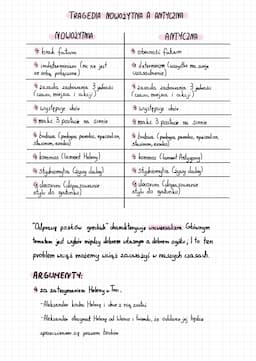 TRAGEDIA NOWOŻYTNA A ANTYCZNA
NOWOŻYTNA
ANTYCZNA
brak fatum
obecność fatum
indeterminizm (nic nie jest
ze sobą połączone)
determinizm (wszystko ma swoje
uzasadnienie)
zasada zachowania 3 jedności
(czasu, miejsca i akcji)
zasada zachowania 3 jedności
(czasu, miejsca i akcji)
występuje chór
występuje chór
maks 3 postacie na scenie
maks 3 postacie na scenie
budowa (prolog, parodos, epeisodion,
stasimon, exodos)
budowa (prolog, parodos, epeisodion,
stasimon, exodos)
kommos (lament Heleny)
kommos (lament Antygony)
stychomytia (żywy dialog)
stychomytia (żywy dialog)
decorum (dopasowanie
stylu do gatunku)
decorum (dopasowanie
stylu do gatunku)
"Odprawę posłów greckich" charakteryzuje uniwersalizm. Głównym
tematem jest wybór między dobrem własnym a dobrem ogółu, i to ten
problem wciąż możemy wciąż zauważyć w naszych czasach.
ARGUMENTY:
za zatrzymaniem Heleny w Troi,
-Aleksander kocha Helenę i chce z nią zostać
-Aleksander otrzymał Helenę od Wenus i twierdzi, że oddanie jej będzie
sprzeciwieniem się prawom boskim